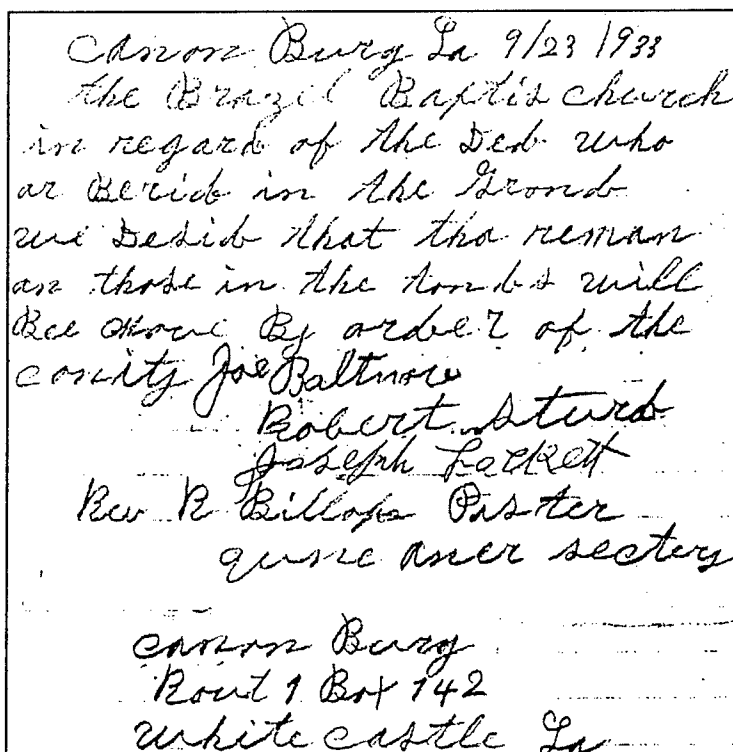 Canon Burg La 9/23 1933
the Brazil Baptis church
in regard of the Ded who
ar Berid in the Grond
we Desid that tha reman
an those in the tombs will
Bee move By order of the
comity Joe Baltmore
Robert Sturd
Joseph Lockett
Rev R Billops Paster
sectery
canon Burg
Rout 1 Box 142
White castle La